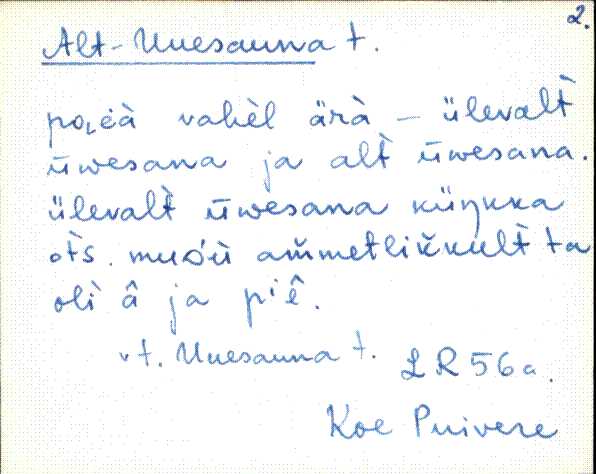 2.
Alt-Uuesauna t.
vahèl ärà – ülevalt̀
ūwesana ja alt̀ ūwesana.
ülevalt̀ ūwesana küŋkka
ots. ta
olì â ja piê.
vt. Uuesauna t. LR 56a.
Koe Puivere